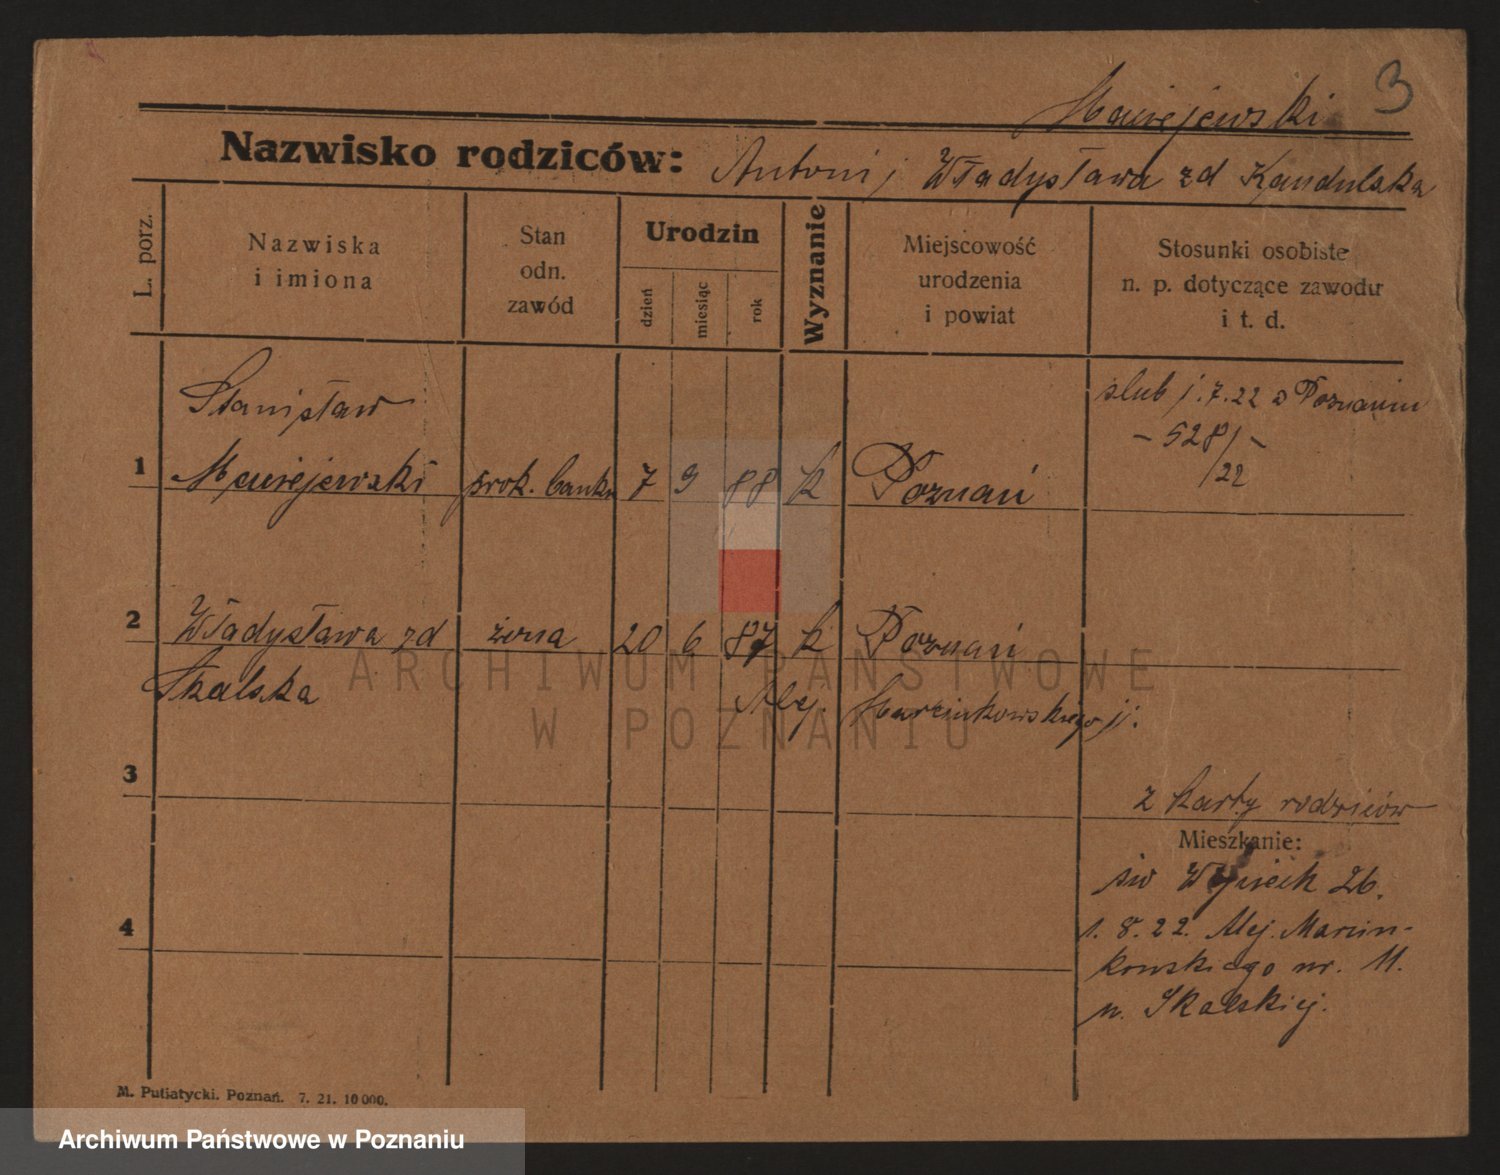 3
Maciejewski
Nazwisko rodziców: Antoni i Władysława zd Kandulska
L. porz.
Nazwiska
i imiona
Stan
odn.
zawód
Urodzin
dzień
miesiąc
rok
Wyznanie
Miejscowość
urodzenia
i powiat
Stosunki osobiste
n. p. dotyczące zawodu
i t. d.
Stanisław
1 Maciejewski prok. banku 7 9 88 k Poznań
ślub 1.7.22 w Poznaniu
- 528/-
/22
2 Władysława zd żona 20 6 87 k Poznań
Skalska
Alej. Marcinkowskiego
3
z karty rodziców
Mieszkanie:
św Wojciech 26.
1. 8. 22. Alej. Marcin-
kowskiego nr. 11.
u. Skalskiej.
4
M. Putiatycki. Poznań. 7. 21. 10 000.
ARCHIWUM PAŃSTWOWE
W POZNANIU
Archiwum Państwowe w Poznaniu